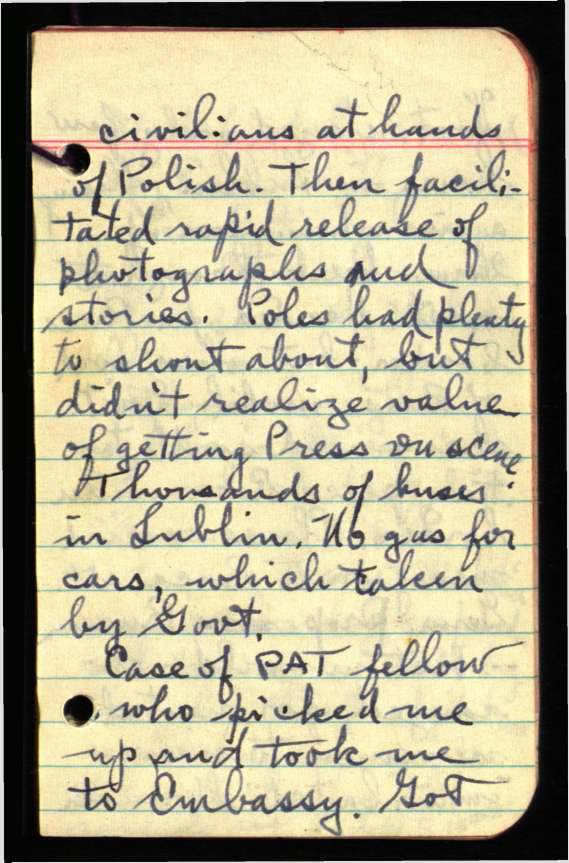 civilians at hands
of Polish. Then facili-
tated rapid release of
photographs and
stories. Poles had plenty
to shout about, but
didn't realize value
of getting Press on scene.
Thousands of buses
in Lublin. No gas for
cars, which taken
by Govt.
Case of PAT fellow
who picked me
up and took me
to Embassy. Got